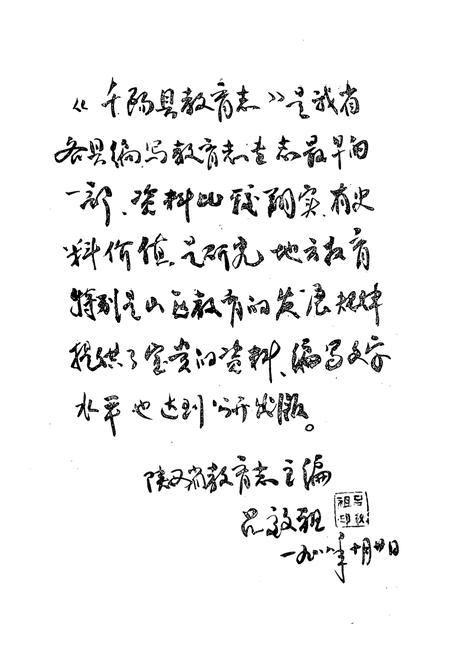 《千阳县教育志》是我省
各县编写教育志查志最早的
一部、资料比较翔实,有史
料价值,是研究地方教育
特别是山区教育的发展规律
提供了宝贵的资料,编写文字
水平也达到公开出版。
陕西省教育志主编
吕效祖
一九八八年十月廿日